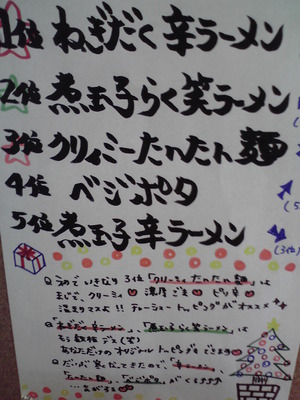 1位 ねぎだく辛ラーメン
2位 煮玉子らく笑ラーメン
3位 クリィミーたんたん麺
4位 ベジポタ
5位 煮玉子辛ラーメン
(3位)
3位「クリーミィたんたん麺」は
まじで、クリーミィ 濃厚ごま ピリ辛
温まりマスよ!! チャーシュートッピングがオススメ
「ねぎだく辛ラーメン」、「煮玉子らく笑ラーメン」は
もう鉄板デス(笑)
あなただけのオリジナルトッピングもできます
「辛ラーメン」
「たんたん麺」「ベジポタ」が